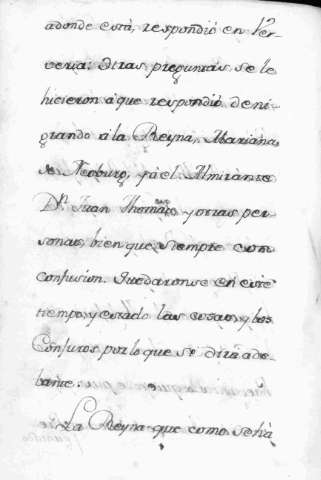 adonde está, respondió en Ver-
veria: Otras preguntas se le
hicieron á que respondió deni-
grando á la Reyna, Mariana
de Neoburg, y á el Almirante
Dn. Juan Thomás, y otras per-
sonas, bien que siempre con
confusion. Quedaronse en este
tiempo, y estado las cosas, y los
Conjuros, por lo que se dirá ade-
lante.
La Reyna que como se há